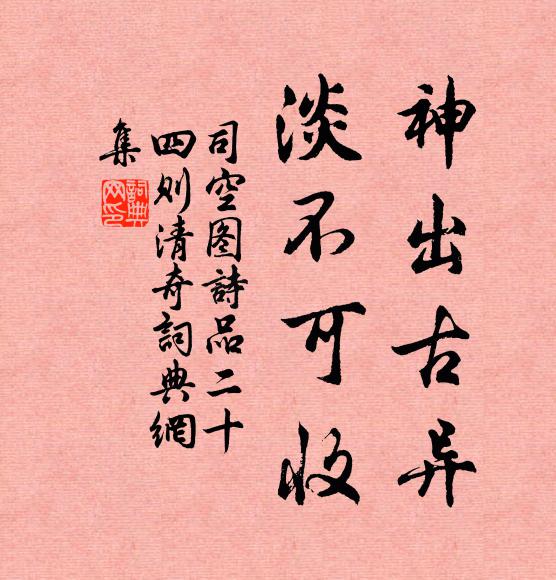 神出古异
淡不可收
司空图詩品二十
四则清奇詞典網
集
詞典
网印